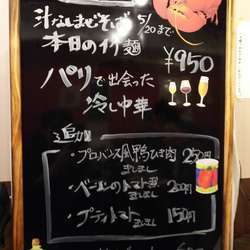 汁なしまぜそば 5/20まで
本日のイケ麺
¥950
パリで出会った
冷し中華
追加
・プロバンス風鴨ひき肉 250円
ましまし
・ベーコンのトマト煮 200円
ましまし
・プチトマト 150円
ましまし